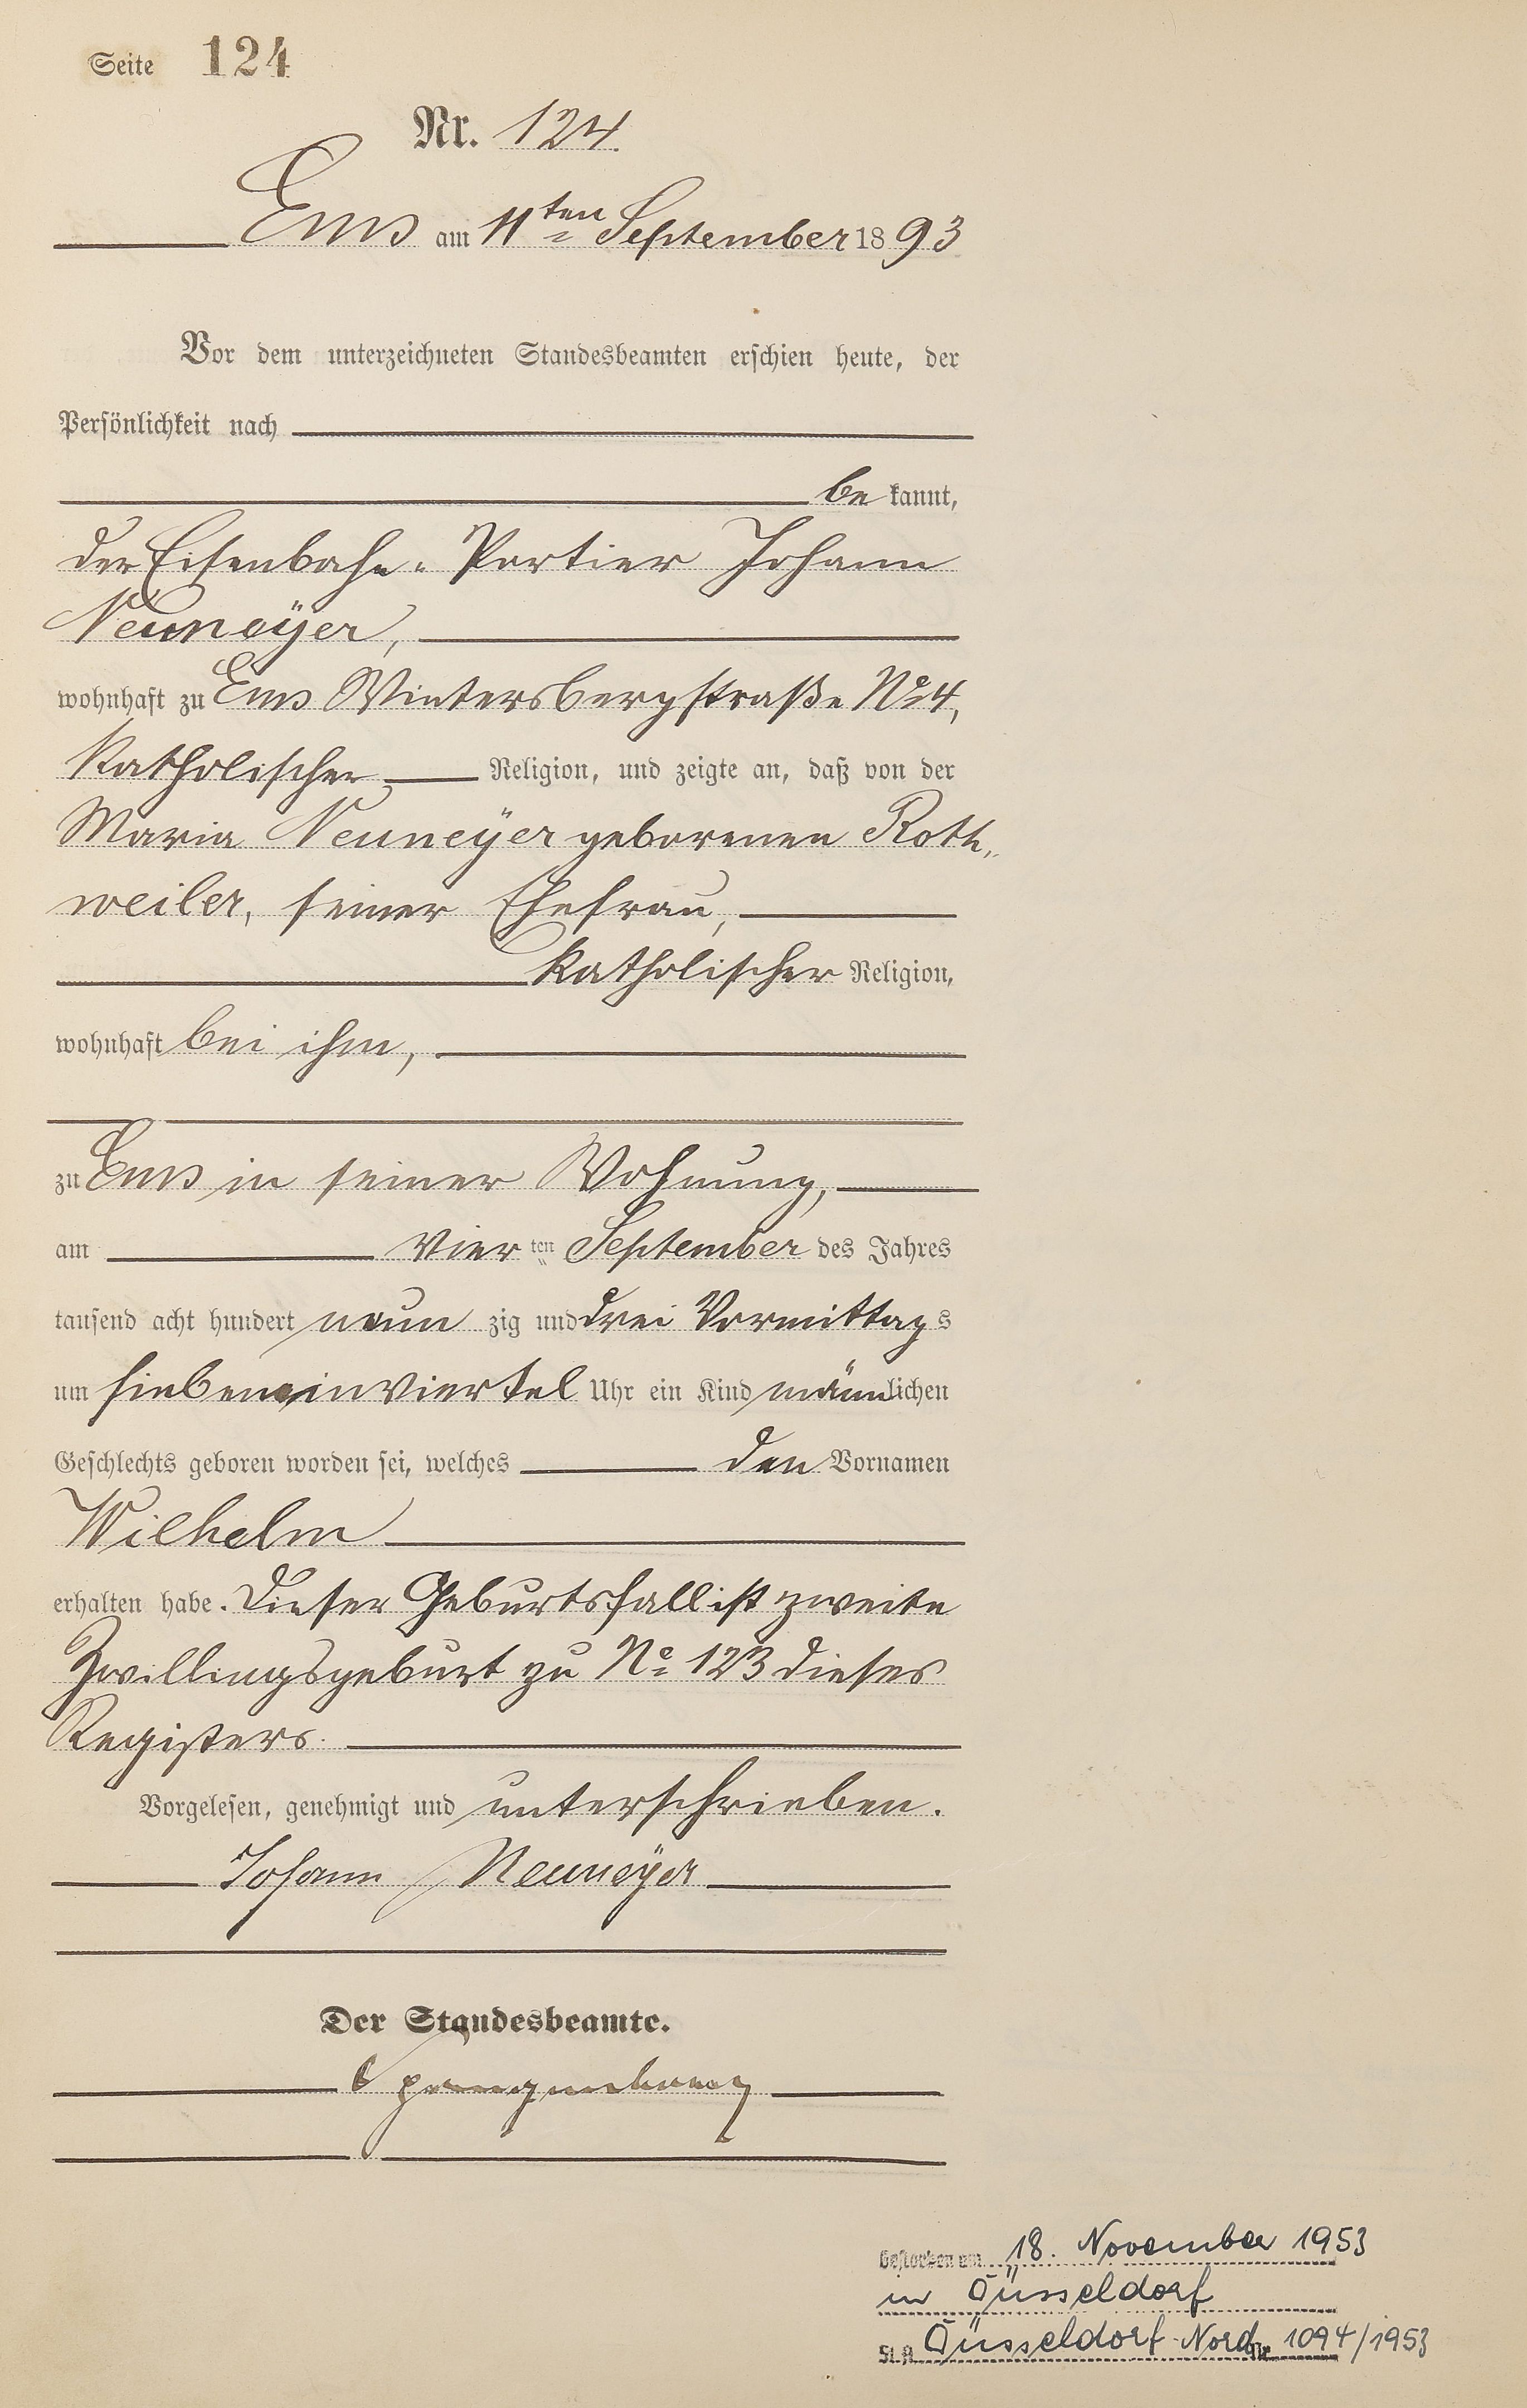 Seite 124
Nr. 124.
Ems am 11ten September 1893
Vor dem unterzeichneten Standesbeamten erschien heute, der
Persönlichkeit nach
bekannt,
der Eisenbahn-Portier Johann
Neumeÿer,
wohnhaft zu Ems Wintersbergstraße No 4,
katholischer Religion, und zeigte an, daß von der
Maria Neumeÿer geborenen Roth-
weiler, seiner Ehefrau,
katholischer Religion,
wohnhaft bei ihm,
zu Ems in seiner Wohnung,
am vierten September des Jahres
tausend acht hundert neunzig und drei Vormittags
um siebeneinviertel Uhr ein Kind männlichen
Geschlechts geboren worden sei, welches den Vornamen
Wilhelm
erhalten habe. Dieser Geburtsfall ist zweite
Zwillingsgeburt zu No 123 dieses
Registers.
Vorgelesen, genehmigt und unterschrieben.
Johann Neumeÿer
Der Standesbeamte.
Gestorben am 18. November 1953
in Düsseldorf
St.A. Düsseldorf-Nord Nr. 1094/1953